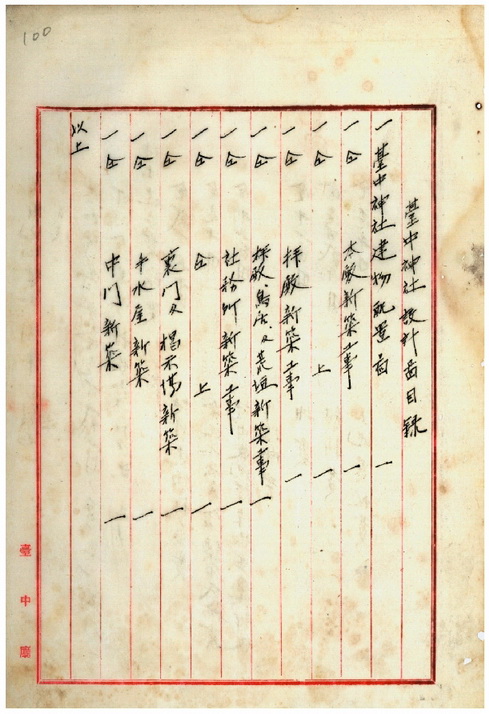 100
臺中神社設計圖目錄
一 臺中神社建物配置圖 一
一 仝 本殿新築工事 一
一 仝 上 一
一 仝 拝殿新築工事 一
一 仝 拝殿、鳥居、及荒垣新築工事 一
一 仝 社務所新築工事 一
一 仝 仝 上 一
一 仝 裏門及掲示場新築 一
一 仝 手水屋新築 一
一 仝 中門新築 一
以上
臺中廳